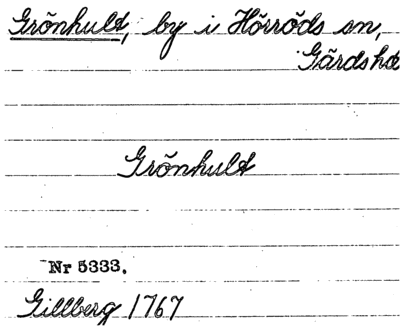 Grönhult, by i Hörröds sn,
Gärds hd
Grönhult
Nr 5333.
Gillberg 1767